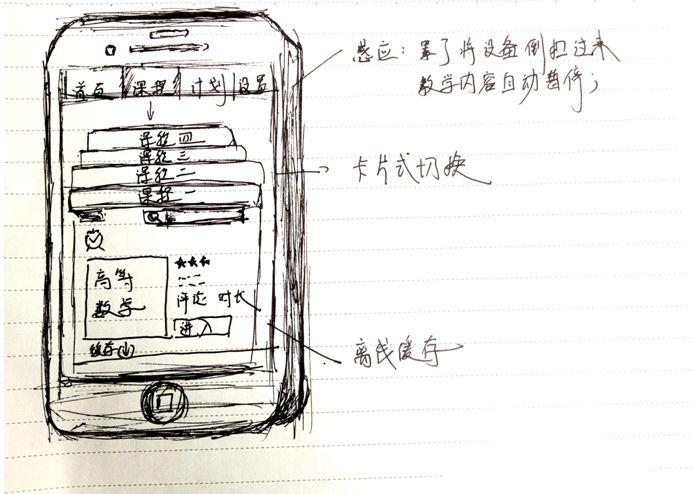 首页 课程 计划 设置
课程四
课程三
课程二
课程一
高等
数学
评论 时长
进入
缓存(↓)
感应：累了将设备倒扣过来
教学内容自动暂停；
卡片式切换
离线缓存